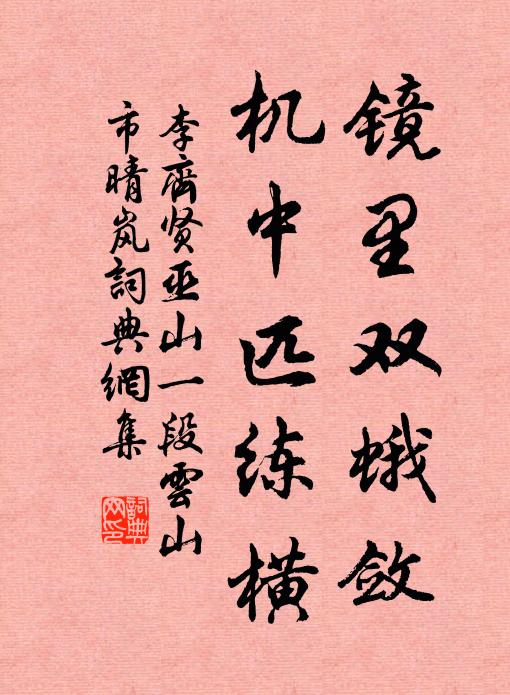 镜里双蛾敛
机中匹练横
李齊贤巫山一段雲山
市晴岚詞典網集
詞典
网印